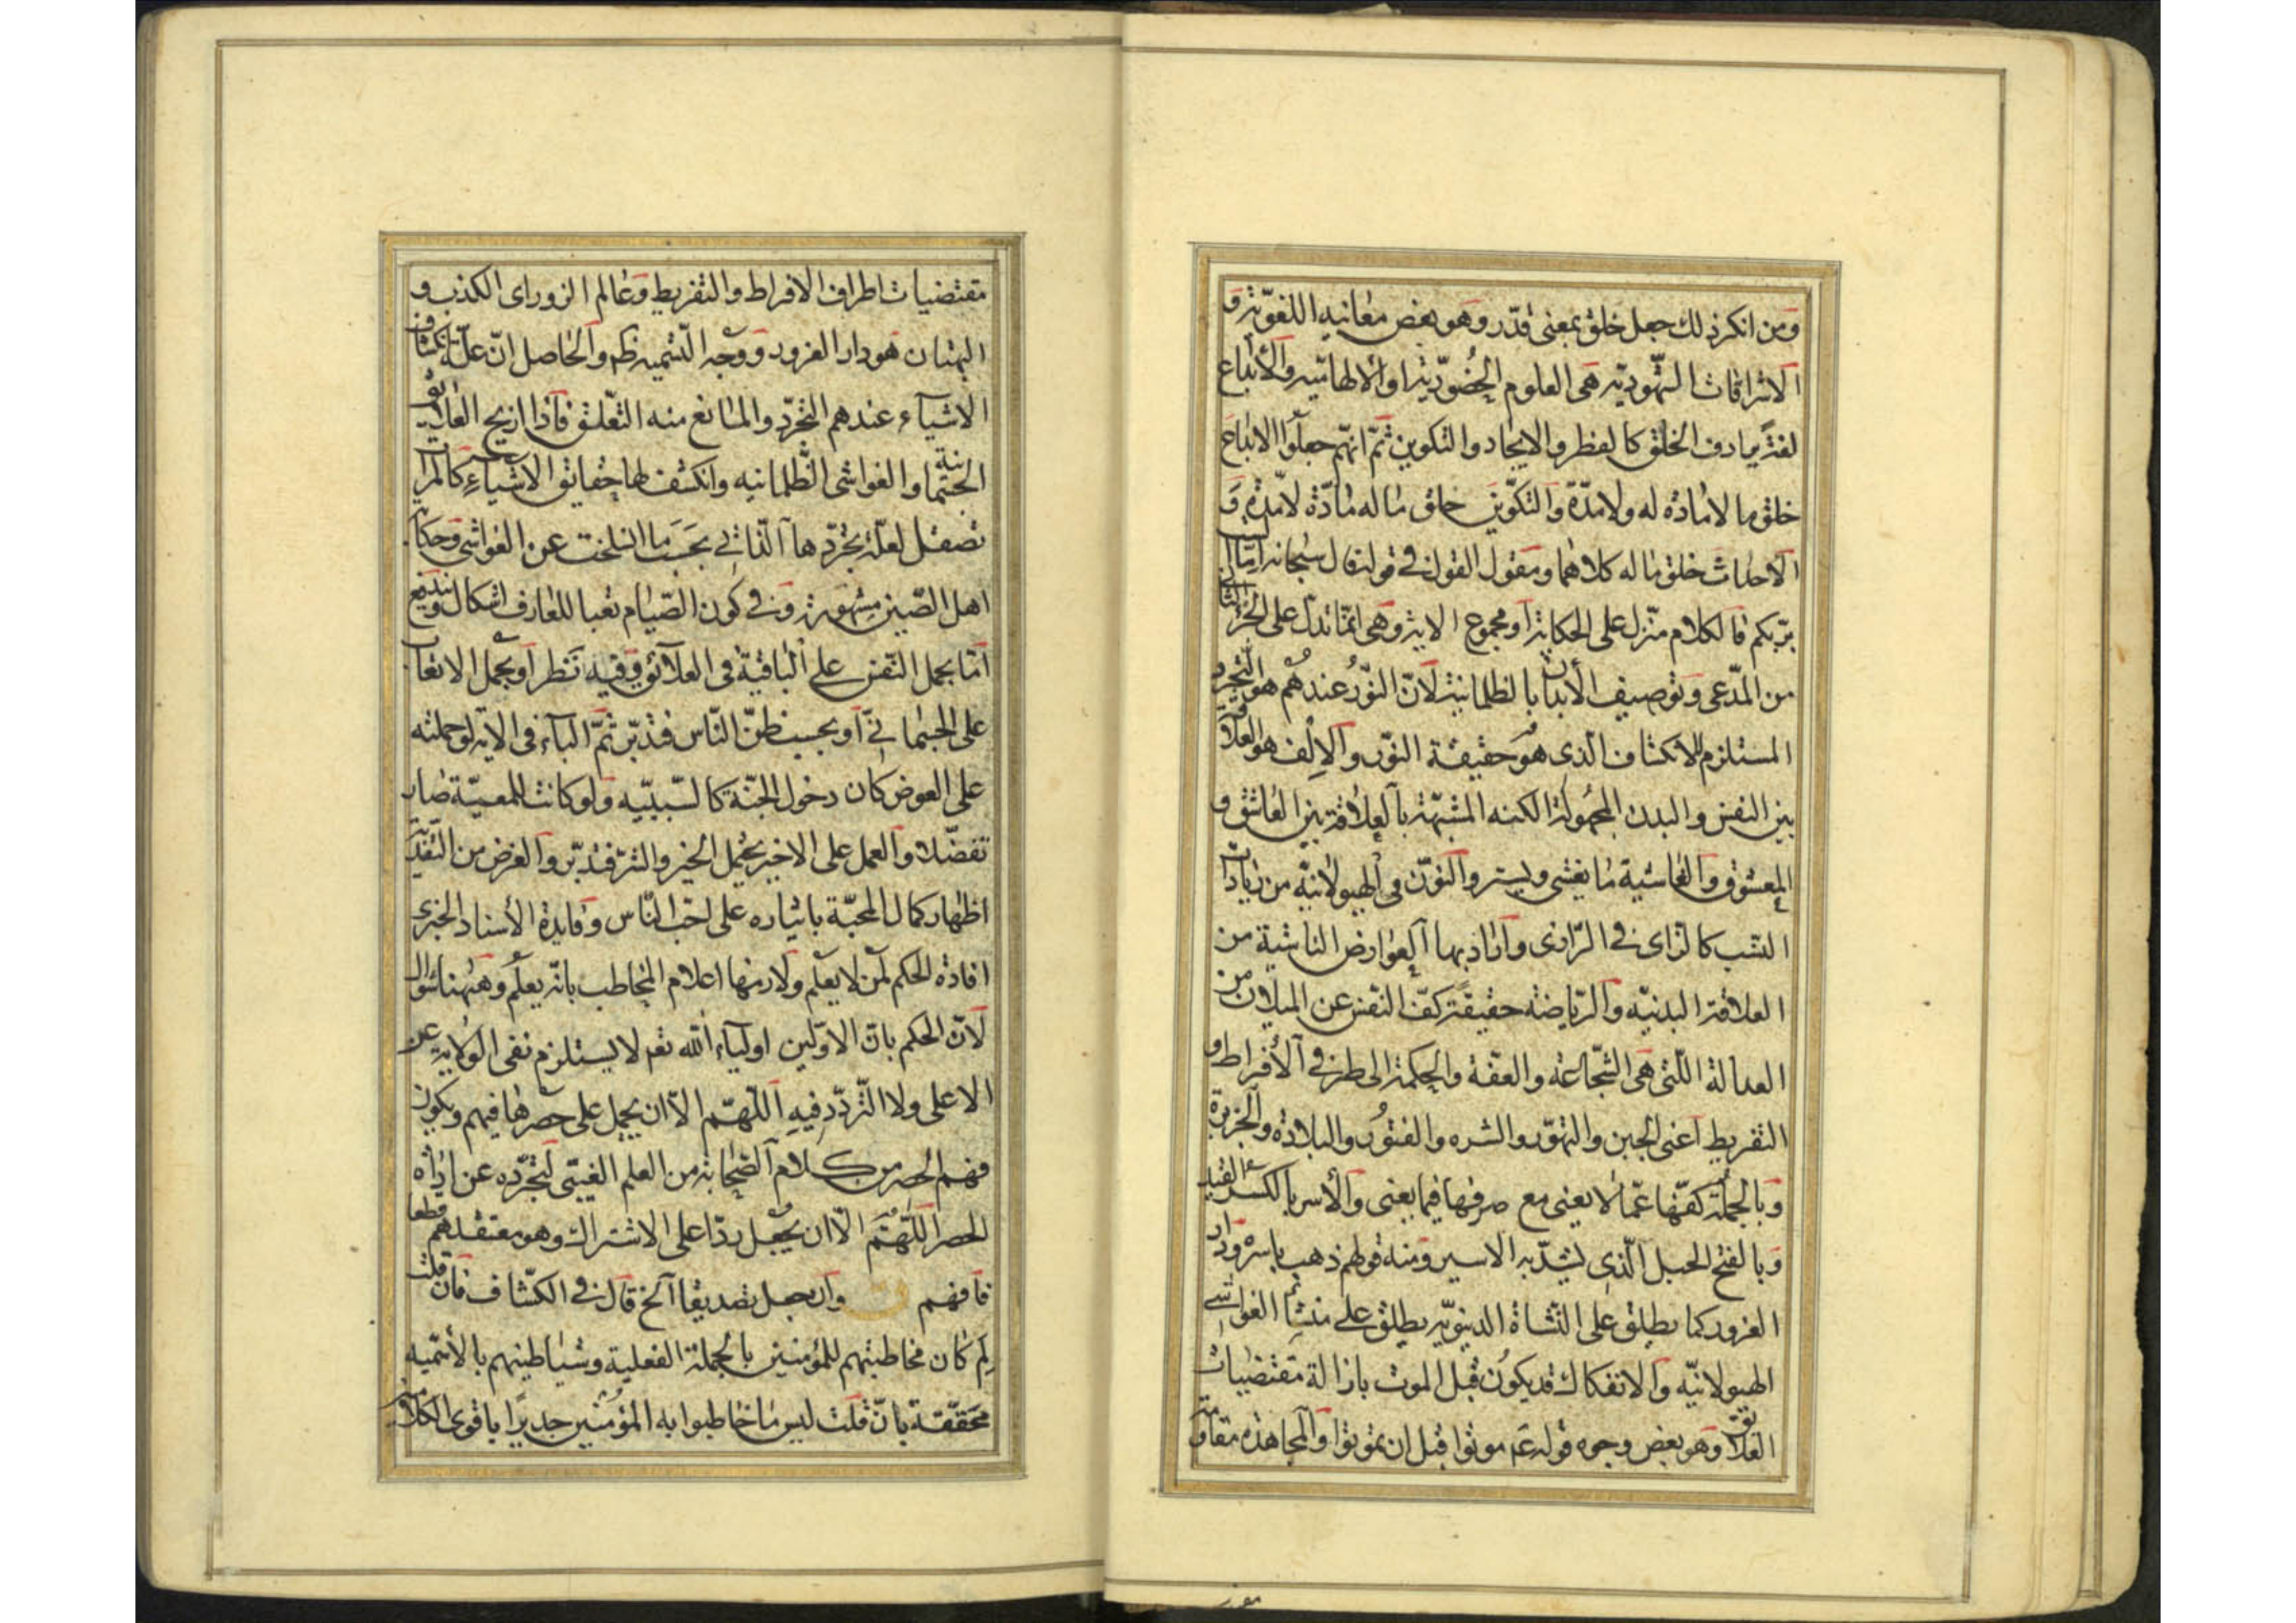 ومن انكر ذلك جعل خلق بمعنى قدّر وهو بعض معانيه اللغويّة و
الاشراقات الشهوديّه هى العلوم الحضوريّة او الالهاميّه والأبداع
لغةً يرادف الخلق كالفطر والايجاد والتكوين ثمّ انهم جعلوا الابداع
خلق ما لا مادة له ولا مدّة والتكوين خلق ما له مادّة لا مدّة و
الاحداث خلق ما له كلاهما ومقول القول فى قوله قال سبحانه امّا
بربّكم فالكلام منزل على الحكاية او مجموع الاية وهى انما تدل على الجزء الثانى
من المدّعى وتوصيف الأبدان بالظلمانيّة لانّ النّور عندهم هو التجرد
المستلزم للانكشاف الذى هو حقيقة النوّر والإلف هو العلاقة
بين النفس والبدن المجهولة الكنه المشبّهة بالعلاقة بين العاشق و
المعشوق والغاشية ما يغشى ويستر والنوّن فى الهيولانيّة من زيادات
النسب كالزاى فى الرّازى واراد بها العوارض الناشية من
العلاقة البدنيّه والرّياضة حقيقةً كفّ النفس عن الميلان من
العدالة اللّتى هى الشّجاعة والعفّة والحكمة الى طرفى الأفراط و
التفريط اعنى الجبن والتهوّر والشره والفتور والبلادة والجربزة
وبالجملة كفّها عمّا لا يعنى مع صرفها فيما يعنى والأسر بالكسر القيد
وبالفتح الحبل الّذى يشدّ به الاسير ومنه قولهم ذهب باسره ودار
الغرور كما يطلق على النّشاة الدنيويّه يطلق على منشأ الغواشى
الهيولانيّه والانفكاك قد يكون قبل الموت بازالة مقتضيات
العلايق وهو بعض وجوه قوله عم موتوا قبل ان تموتوا والمجاهدة مقاومة
مقتضيات اطراف الافراط والتفريط وعالم الزور اى الكذب و
البهتان هو دار الغرور ووجه التسميه ظم والحاصل انّ علّة انكشاف
الاشياء عندهم التجرّد والمانع منه التعّلق فاذا ازيح العلايق
الجسمانية والغواشى الظّلمانيه وانكشف لها حقايق الاشياء كالمرآت
تصقل لعلّة تجرّدها الذاتى بحسب ما انسلخت عن الغواشى وحكاية
اهل الصّين مشهورة وفى كون الصّيام تعبا للعارف اشكال ويندفع
امّا بحمل النّفس على الباقية فى العلائق وفيه نظر او بحمل الاتعاب
على الجسمانىّ او بحسب ظنّ النّاس فتدبّر ثمّ الباء فى الاية لو حملته
على العوض كان دخول الجنّة كالسّببيّه ولو كانت للمعيّة صار
تفضّلا والعمل على الاخير يحمل الخير والشر فتدبّر والغرض من التفدية
اظهار كمال المحبّة بايثاره على احبّ النّاس وفايدة الأسناد الخبرى
افادة الحكم لمن لا يعلم ولازمها اعلام المخاطب بانه يعلم وههنا سؤال
لانّ الحكم بانّ الاوّلين اولياء الله تعم لا يستلزم نفى الولاية عن
الاعلى ولا التّردّد فيه اللّهمّ الّا ان يحمل على حصرها فيهم ويكون
فهم الحصر من كلام الصّحابة من العلم الغيبى لتجرّده عن اداة
الحصر اللّهمّ الّا ان يجعل ردّا على الاشتراك وهو معتقدهم قطعا
فافهم ق وان جعل تصديقا الخ قال فى الكشّاف فان قلت
لم كان مخاطبتهم للمؤمنين بالجملة الفعلية وشياطينهم بالأسميه
محقّقة بانّ قلت ليس ما خاطبوا به المؤمنين جديرًا باقوى الكلامين